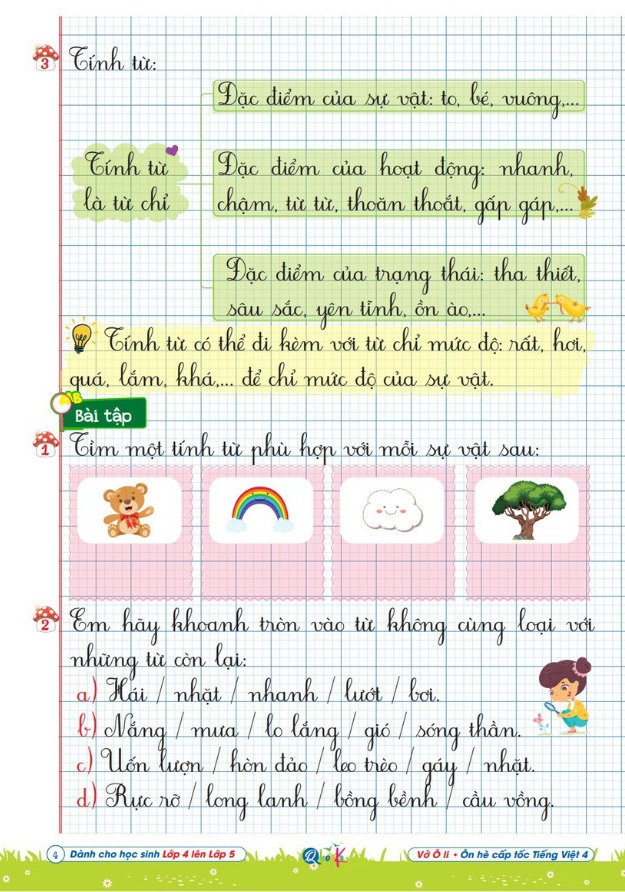 3 Tính từ:
Đặc điểm của sự vật: to, bé, vuông,...
Tính từ
là từ chỉ
Đặc điểm của hoạt động: nhanh,
chậm, từ từ, thoăn thoắt, gấp gáp,...
Đặc điểm của trạng thái: tha thiết,
sâu sắc, yên tĩnh, ồn ào,...
Tính từ có thể đi kèm với từ chỉ mức độ: rất, hơi,
quá, lắm, khá,... để chỉ mức độ của sự vật.
Bài tập
1 Tìm một tính từ phù hợp với mỗi sự vật sau:
2 Em hãy khoanh tròn vào từ không cùng loại với
những từ còn lại:
a) Hái / nhặt / nhanh / lướt / bơi.
b) Nắng / mưa / lo lắng / gió / sóng thần.
c) Uốn lượn / hòn đảo / leo trèo / gáy / nhặt.
d) Rực rỡ / long lanh / bồng bềnh / cầu vồng.
4 Dành cho học sinh Lớp 4 lên Lớp 5
Vở Ô li • Ôn hè cấp tốc Tiếng Việt 4